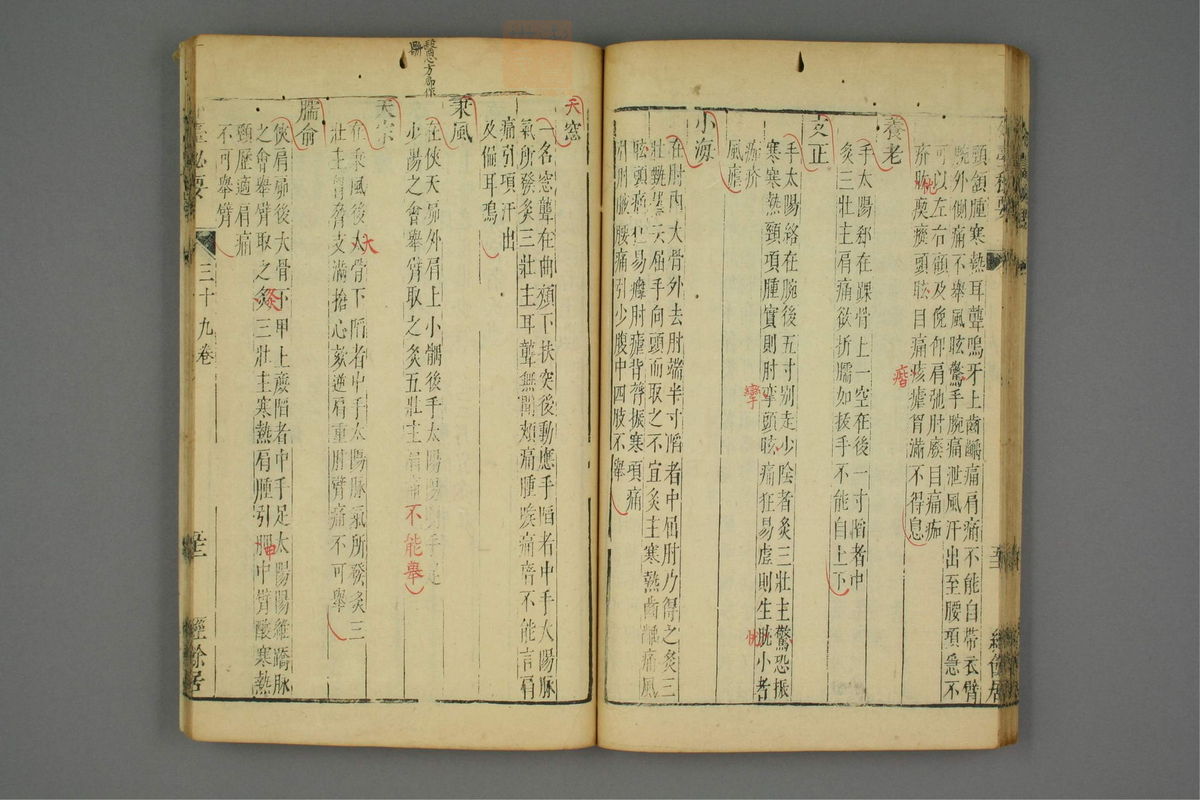 頸頷腫寒熱耳聾鳴牙上齒齲痛肩痛不能自帶衣臂
腕外側痛不舉風眩驚手腕痛泄風汗出至腰項急不
可以左右顧及俛仰肩弛肘廢目痛痂
疥胗瘈瘲頭眩目痛痎瘧胷滿不得息
養老
手太陽郄在踝骨上一空在後一寸陷者中
灸三壯主肩痛欲折臑如拔手不能自上下
支正
手太陽絡在腕後五寸別走少陰者灸三壯主驚恐振
寒寒熱頸項腫實則肘攣頭眩痛狂易虛則生胧小者
痂疥
風瘧
小海
在肘內大骨外去肘端半寸陷者中屈肘乃得之灸三
壯甄權云屈手向頭而取之不宜灸主寒熱齒齲痛風
眩頭痛狂易癰肘瘧背膂振寒項痛
引肘腋腰痛引少腹中四肢不舉
天窓
一名窓聾在曲頰下扶突後動應手陷者中手太陽脉
氣所發灸三壯主耳聾無聞頰痛腫喉痛瘖不能言肩
痛引項汗出
及偏耳鳴
醫心方卽作
秉風
在俠天窌外肩上小髃後手太陽陽明手足
少陽之會舉臂取之灸五壯主肩痛不能舉
天宗
在秉風後大骨下陷者中手太陽脉氣所發灸三
壯主胷脅支滿搶心欬逆肩重肘臂痛不可舉
臑俞
俠肩窌後大骨下甲上廉陷者中手足太陽陽維蹻脉
之會舉臂取之灸三壯主寒熱肩腫引胛中臂酸寒熱
頸歷適肩痛
不可舉臂
臺秘要
三十九卷
經餘居